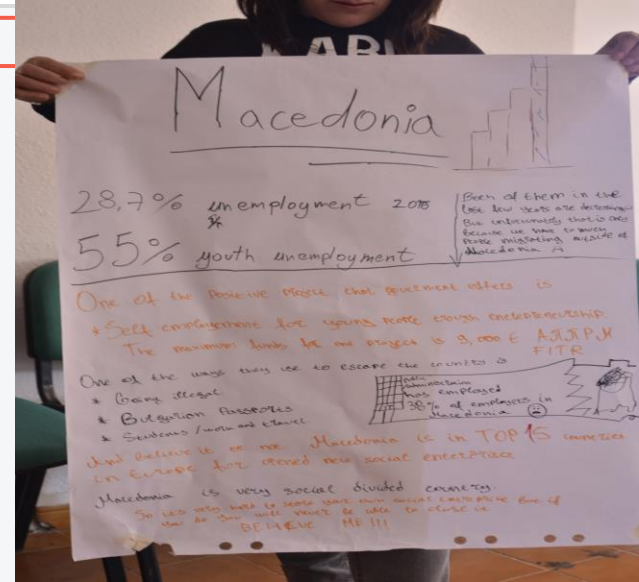 Macedonia
28,7% unemployment 2015
55% youth unemployment
Both of them in the
last few years are decreasing
But unfortunately that is only
because we have to much
people migrating outside of
Macedonia
One of the positive project that goverment offers is
* Self employement for young people trough enterpreneurship.
The maximum funds for one project is 9,000 €
FITR
One of the ways they use to escape the country is
* Going illegal
* Bulgarian Passports
* Students / work and travel
has employed
38% of employers in
Macedonia
And believe it or not Macedonia is in TOP 15 countries
in Europe for opened new social enterprise
Macedonia is very social divided country.
So it's very hard to your own social enterprise But if
you do you will never be able to close it
BELIEVE ME !!!